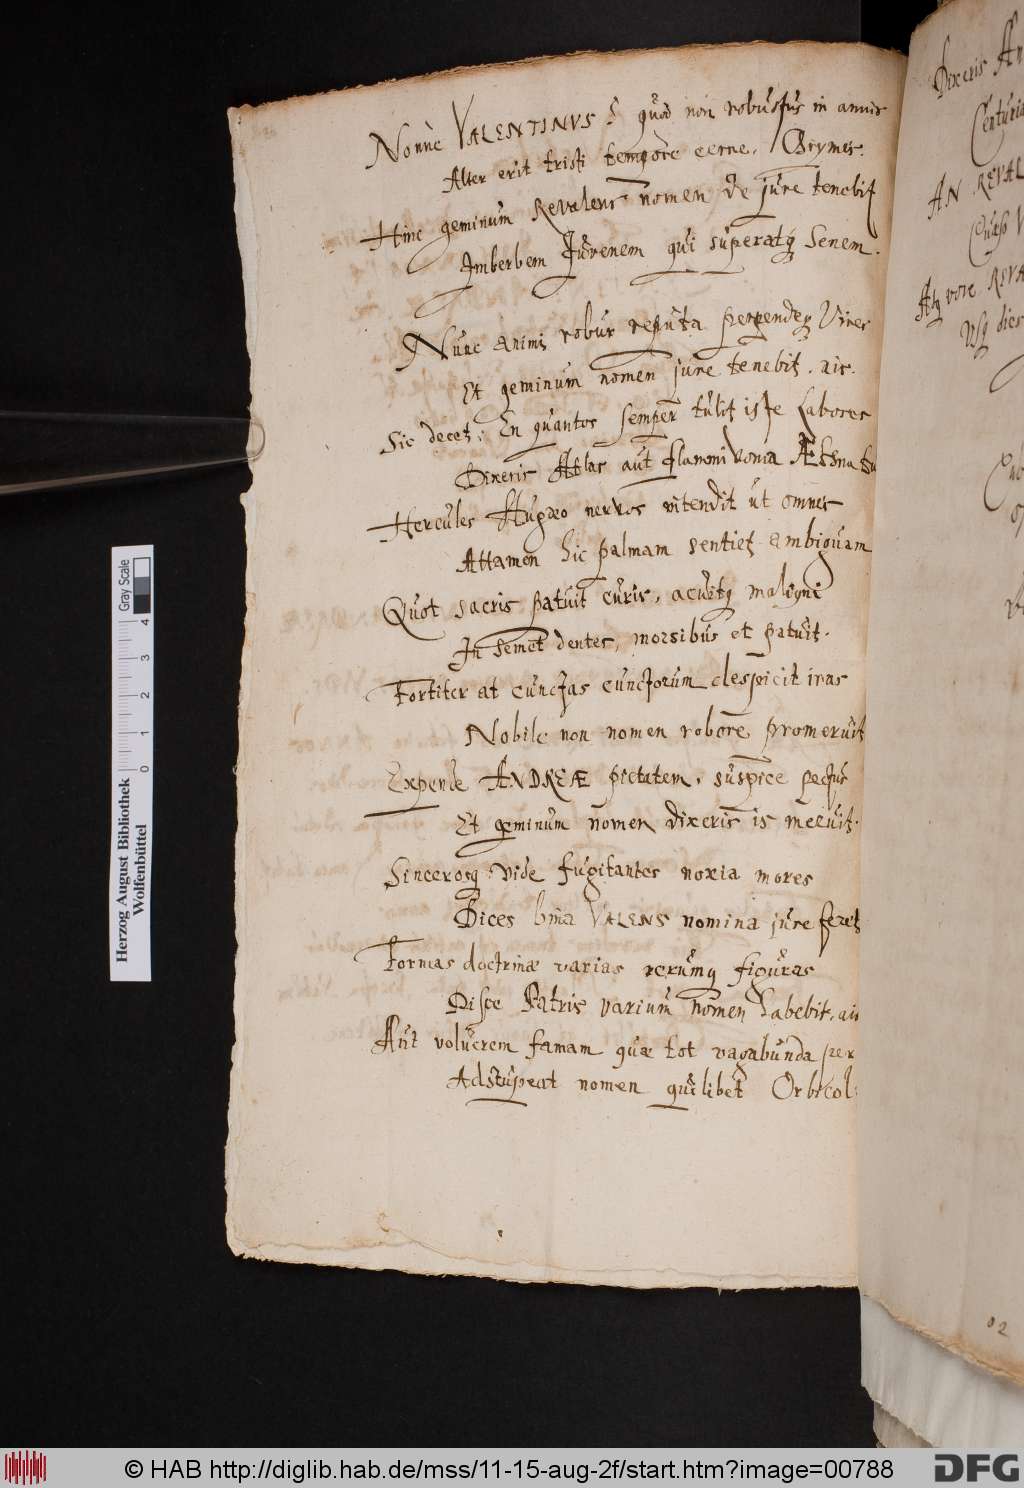 Nonne VALENTINVS? quod non robustus in annis
Alter erit tristi tempore cerne,
Hinc geminum Revalens nomen de jure tenebit
Imberbem Juvenem qui superatq Senem.
Nunc animi robur reputa perpendeq Vires
Et geminum nomen jure tenebit, ais.
Sic decet; En quantos semper tulit iste Labores
Dixeris Atlas aut flammivoma Ætna
Hercules Augæo nervos intendit ut omnes
Attamen hic palmam sentiet ambiguam
Quot sacris patuit curis, acuitq maligni
In semet dentes, morsibus et patuit.
Fortiter at cunctas cunctorum despicit iras
Nobile non nomen robore promeruit
Expende ANDREÆ pietatem, suspice pectus
Et geminum nomen dixeris is meruit.
Sincerosq vide fugitantes noxia mores
Dices bina VALENS nomina jure feret
Formas doctrinæ varias rerumq figuras
Disce Patris varium nomen habebit, ais
Aut volucrem famam quæ tot vagabunda per
Adstupeat nomen quilibet Orbicol:
Dixeris
Centuria
AN REVAL
Curso
Atq vore REVA
Vsq dies
02
Herzog August Bibliothek
Wolfenbüttel
0 1 2 3 4
Gray Scale
© HAB http://diglib.hab.de/mss/11-15-aug-2f/start.htm?image=00788
DFG